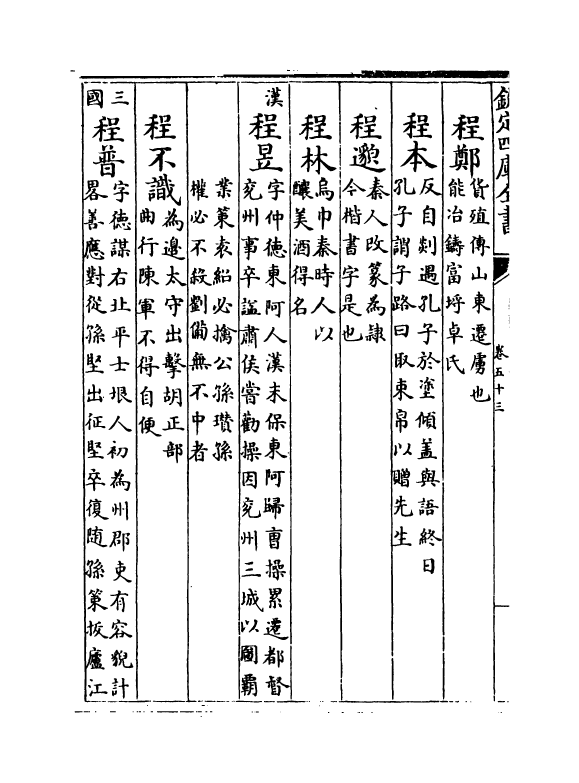 欽定四庫全書
卷五十三
程鄭
貨殖傳山東遷虜也
能冶鑄富埒卓氏
程本
反自剡遇孔子於塗傾蓋與語終日
孔子謂子路曰取束帛以贈先生
程邈
秦人改篆為隷
今楷書字是也
程林
烏巾秦時人以
釀美酒得名
漢
程昱
字仲德東阿人漢末保東阿歸曹操累遷都督
兖州事卒諡肅侯嘗勸操因兖州三城以圖霸
業策袁紹必擒公孫瓚孫
權必不殺劉備無不中者
程不識
為邊太守出擊胡正部
曲行陳軍不得自便
三國
程普
字德謀右北平士垠人初為州郡吏有容貌計
畧善應對從孫堅出征堅卒復随孫策拔廬江